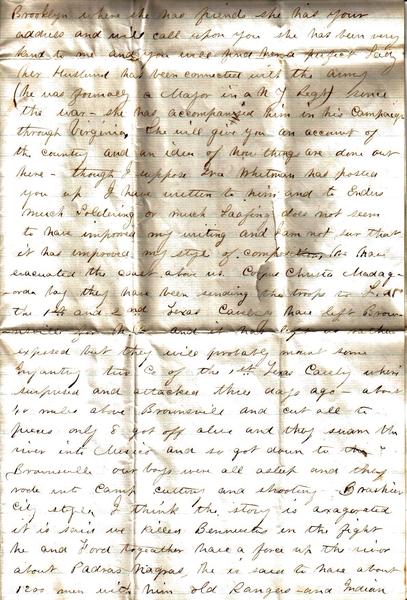 Brooklyn where she has friends she has your
address and will call upon you she has been very
kind to me and you will find her a perfect Lady
her Husband has been connected with the army
(he was formally a Major in a N Y Regt) since
the war - she has accompanied him in his Campaign
through Virginia she will give you an account of
the Country and an idea of how things are done out
here - though I suppose Whitman has posted
you up I have written to him and to Enders
much Soldiering or much Loafing does not seem
to have improved my writing and I am not sur that
it has improved my style of composition, We have
evacuated the coast above us Corpus Christi Madag-
orda bay they have been sending the troops to
the 1st and 2nd Texas Cavelry have left Brown-
ville and it
exposed but they will probably mount some
Infantry two Co of the 1st Texas Cavelry where
surprised and attacked three days ago - about
40 miles above Brownsville and cut all to
pieces only 8 got off alive and they swam the
river into Mexico and so got down to the
Brownsville our boys were all asleep and they
rode into Camp cutting and shooting Brashier
City style, I think the story is exagerated
it is said we killed in the fight
he and Ford togeather have a force up the river
about Padras Nagras, he is said to have about
1200 men with him old Rangers - and Indian